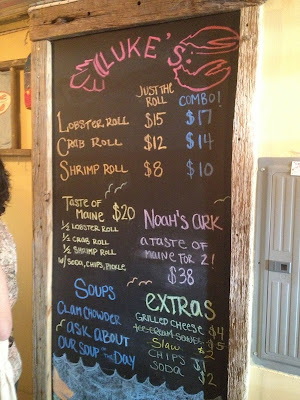 LUKE'S
JUST THE ROLL COMBO!
LOBSTER ROLL $15 $17
CRAB ROLL $12 $14
SHRIMP ROLL $8 $10
TASTE OF MAINE $20
1/2 LOBSTER ROLL
1/2 CRAB ROLL
1/2 SHRIMP ROLL
W/ SODA, CHIPS, PICKLE
NOAH'S ARK
A TASTE OF
MAINE FOR 2!
$38
SOUPS
CLAM CHOWDER
ASK ABOUT
OUR SOUP OF THE DAY
EXTRAS
GRILLED CHEESE $4
SLAW
CHIPS $1
SODA $2